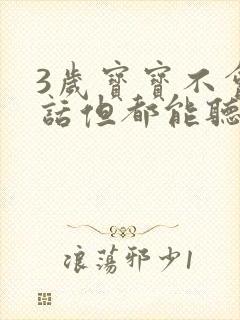 3歲寶寶不會
話但都能聽
浪蕩邪少1